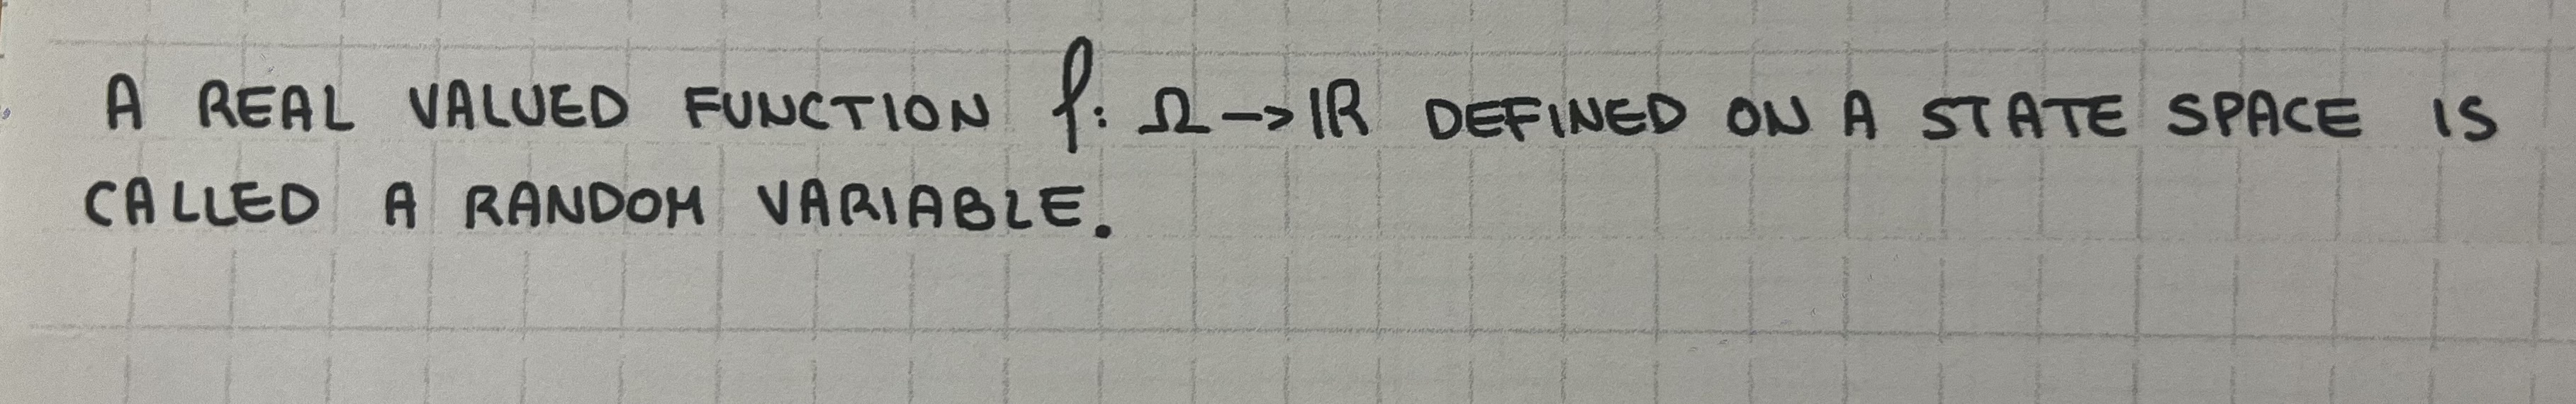 A REAL VALUED FUNCTION f: Ω → ℝ DEFINED ON A STATE SPACE IS
CALLED A RANDOM VARIABLE.